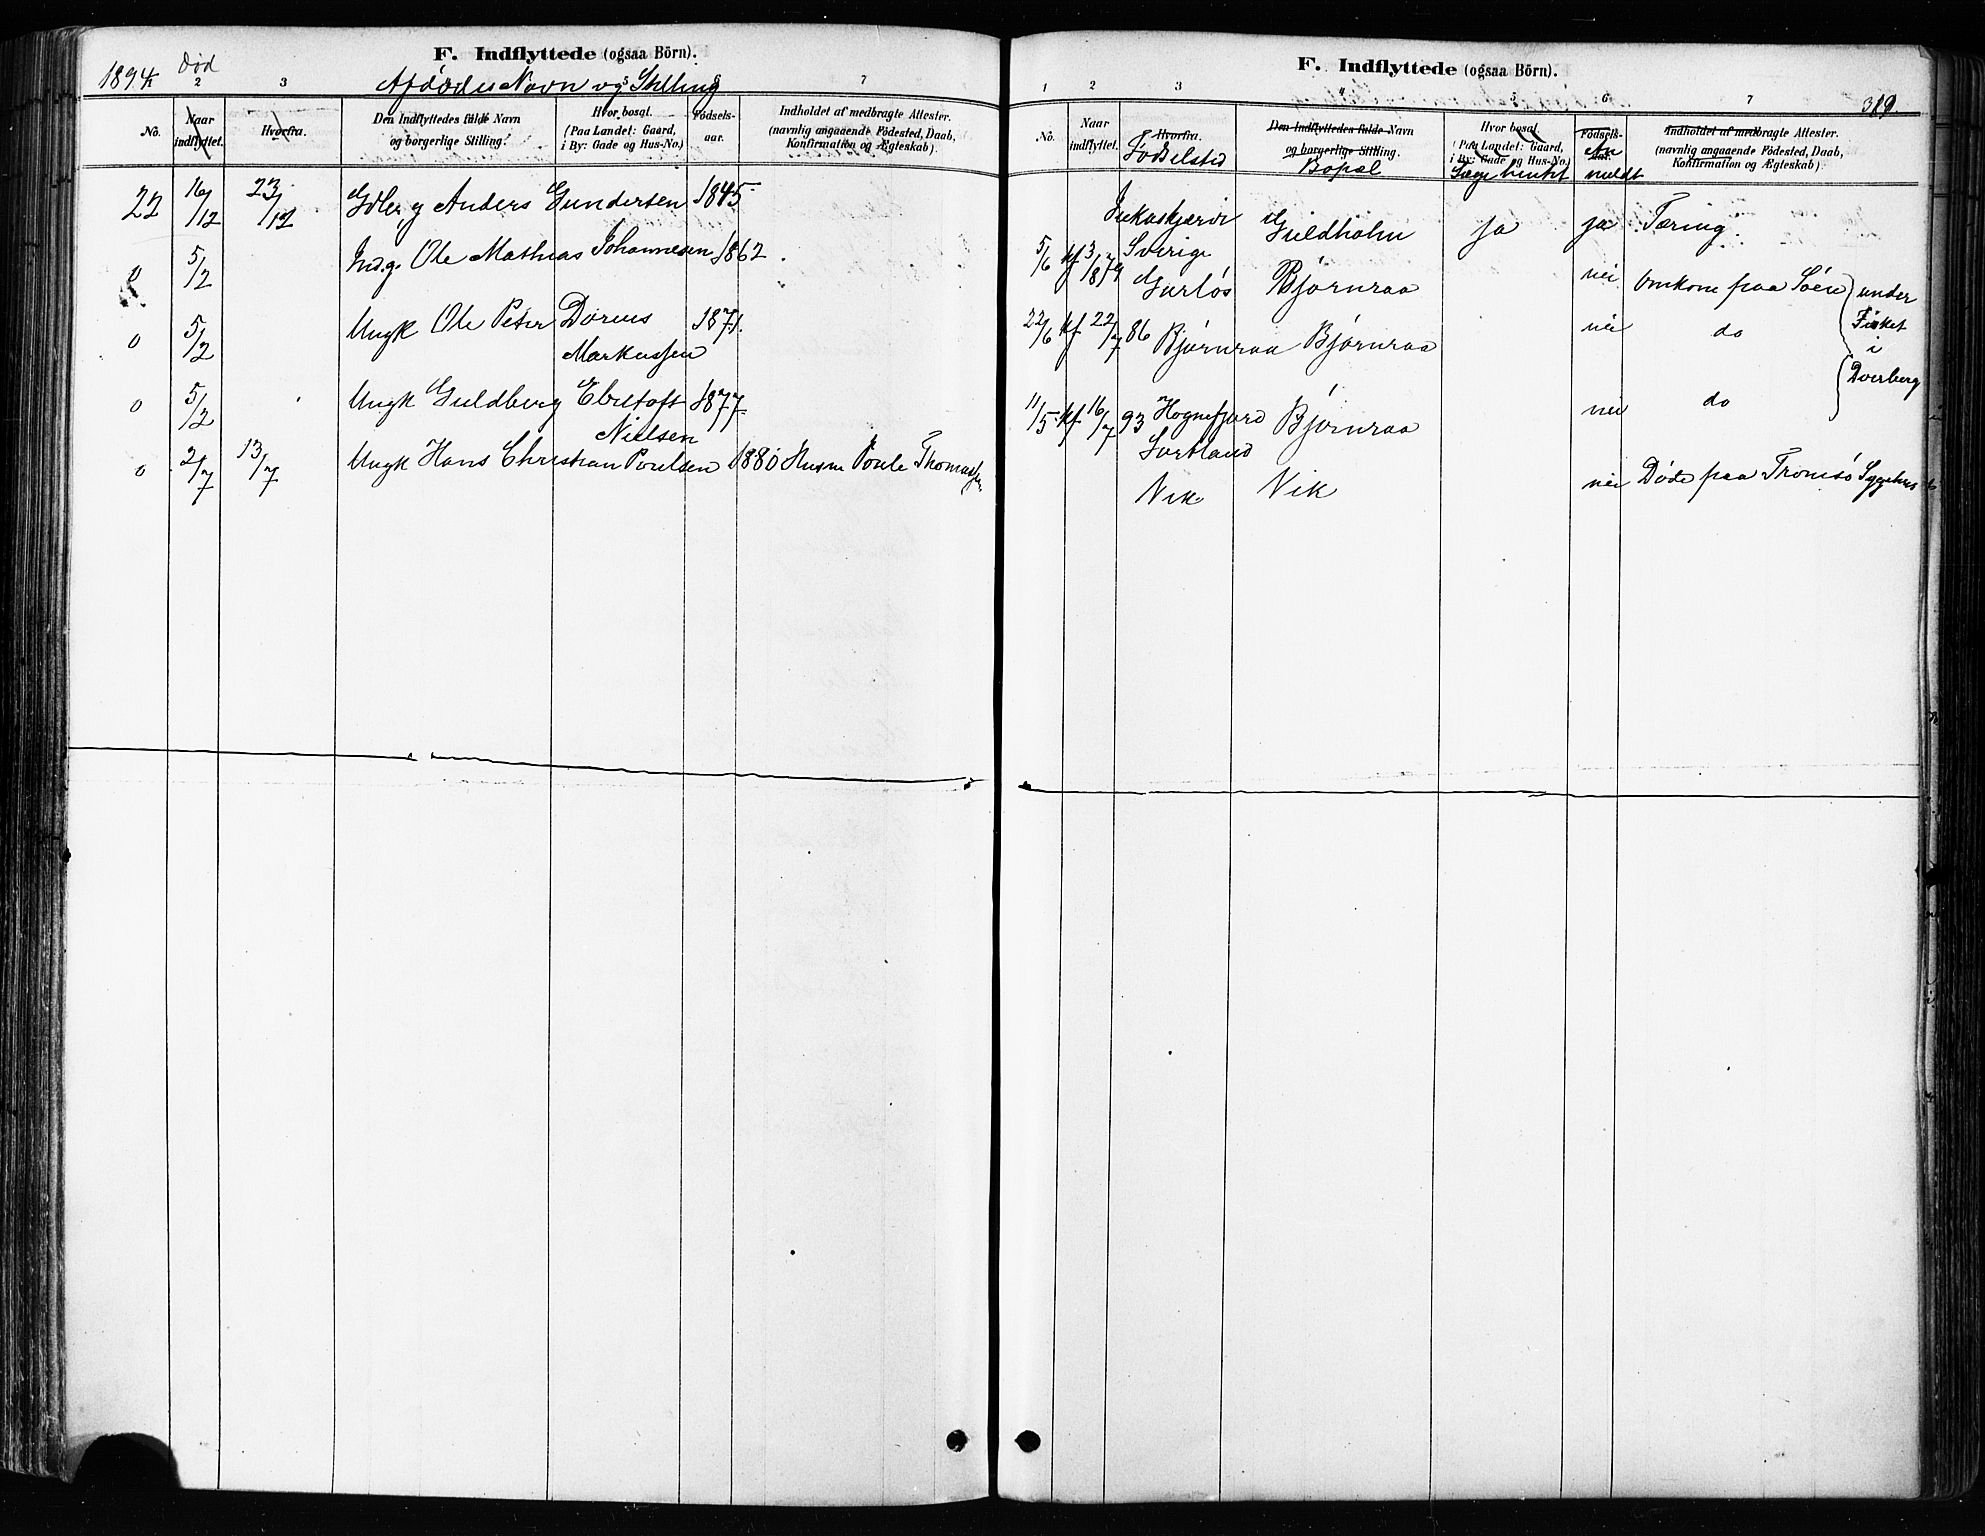 1894
Død
F. Indflyttede (ogsaa Börn).
Afdødes Navn og Stilling
2 3 5 7
No.
Naar indflyttet.
Hvorfra.
Den Indflyttedes fulde Navn
og borgerlige Stilling.
Hvor bosat.
(Paa Landet: Gaard,
i By: Gade og Hus-No.)
Födsels-
aar.
Indholdet af medbragte Attester.
(navnlig angaaende Födested, Daab,
Konfirmation og Ægteskab).
22 16/12 23/12 Anders Gundersen 1845
0 5/2 Indg. Ole Mathias Johannesen 1862
0 5/2 Ungk Ole Peter Dorius 1871.
Markussen
0 5/2 Ungk Guldberg Ebeltoft 1877
Nielsen
0 2/7 13/7 Ungk Hans Christian Poulsen 1880 Husm Poule Thomassen
F. Indflyttede (ogsaa Börn).
319.
1 2 3 4 5 6 7
No.
Naar
indflyttet.
Hvorfra.
Födselsted
Den Indflyttedes fulde Navn
og borgerlige Stilling.
Bopæl
Hvor bosat.
(Paa Landet: Gaard,
i By: Gade og Hus-No.)
Læge hentet
Födsels-
aar.
An
meldt
Indholdet af medbragte Attester.
(navnlig angaaende Födested, Daab,
Konfirmation og Ægteskab).
Jukaskjærvi Guldholm ja ja Tæring.
Sverige
5/6 kf 3/8 79 Bjørnraa nei Omkom paa Søen under
22/6 kf 22/7 86 Bjørnraa Bjørnraa nei do Fisket
i
Dverberg
11/5 kf 16/7 93 Hognfjord Bjørnraa nei do
Sortland
Nik Nik nei Døde paa Tromsø Sygehus